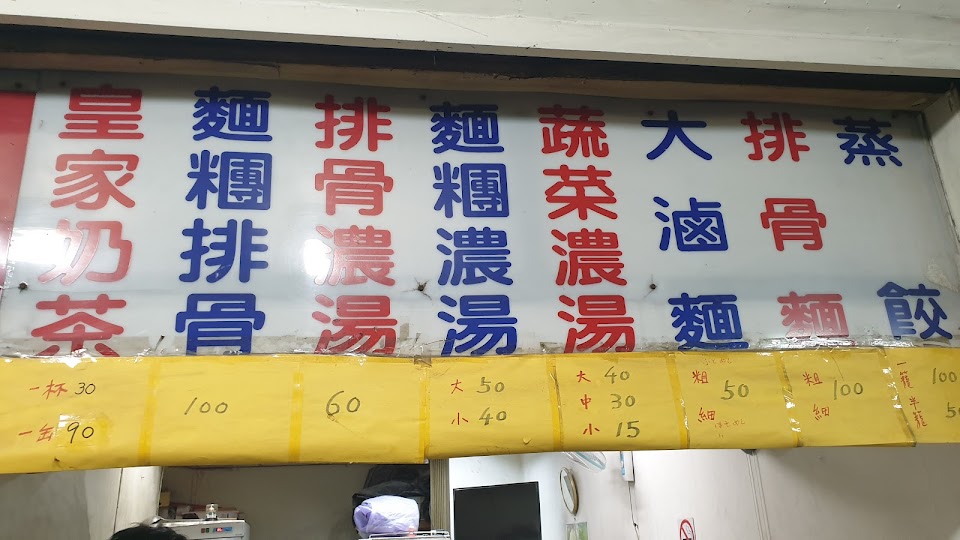 皇家奶茶
麵糰排骨
排骨濃湯
麵糰濃湯
蔬菜濃湯
大滷麵
排骨麵
蒸餃
一杯 30
90
100
60
大 50
小 40
大 40
中 30
小 15
粗
細
50
粗
細
100
一籠 100
半籠